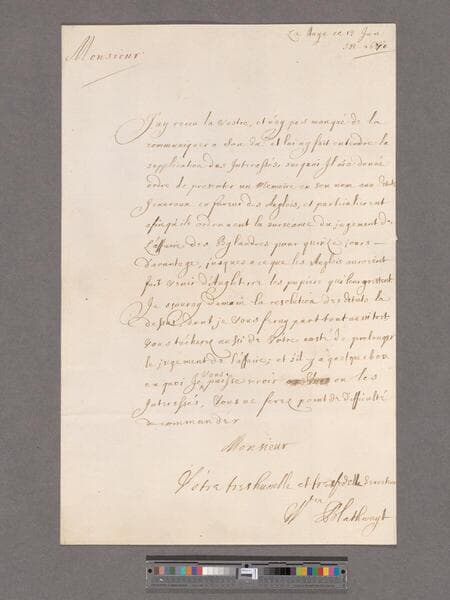 La Haye ce 13 Jan
Monsieur
J'ay receu la vostre, et n'ay pas manqué de la
communiquer a Son et luy ay fait entendre la
supplication des Interessés, surquoi Il a donné
ordre de presenter un Memoire en son nom aux
Generaux en faveur des Anglois, et particulierent
ordonnent la surceance du jugement de
L'affaire des pour quinze jours
davantage, jusques a ce que les Anglois auroient
fait venir d'Angleterre les papiers
Je sçauray demain la resolution des Etats la
dessus, dont je vous feray part tout aussitost
vous tacherez aussi de Vôtre costé de prolonger
le jugement de l'affaire; et s'il y a quelque chose
en quoi Je vous puisse servir ou les
Interessés, Vous ne ferez point de difficulté
de commander
Monsieur
Vôtre tres humble et tres fidelle Serviteur
Wm Blathwayt